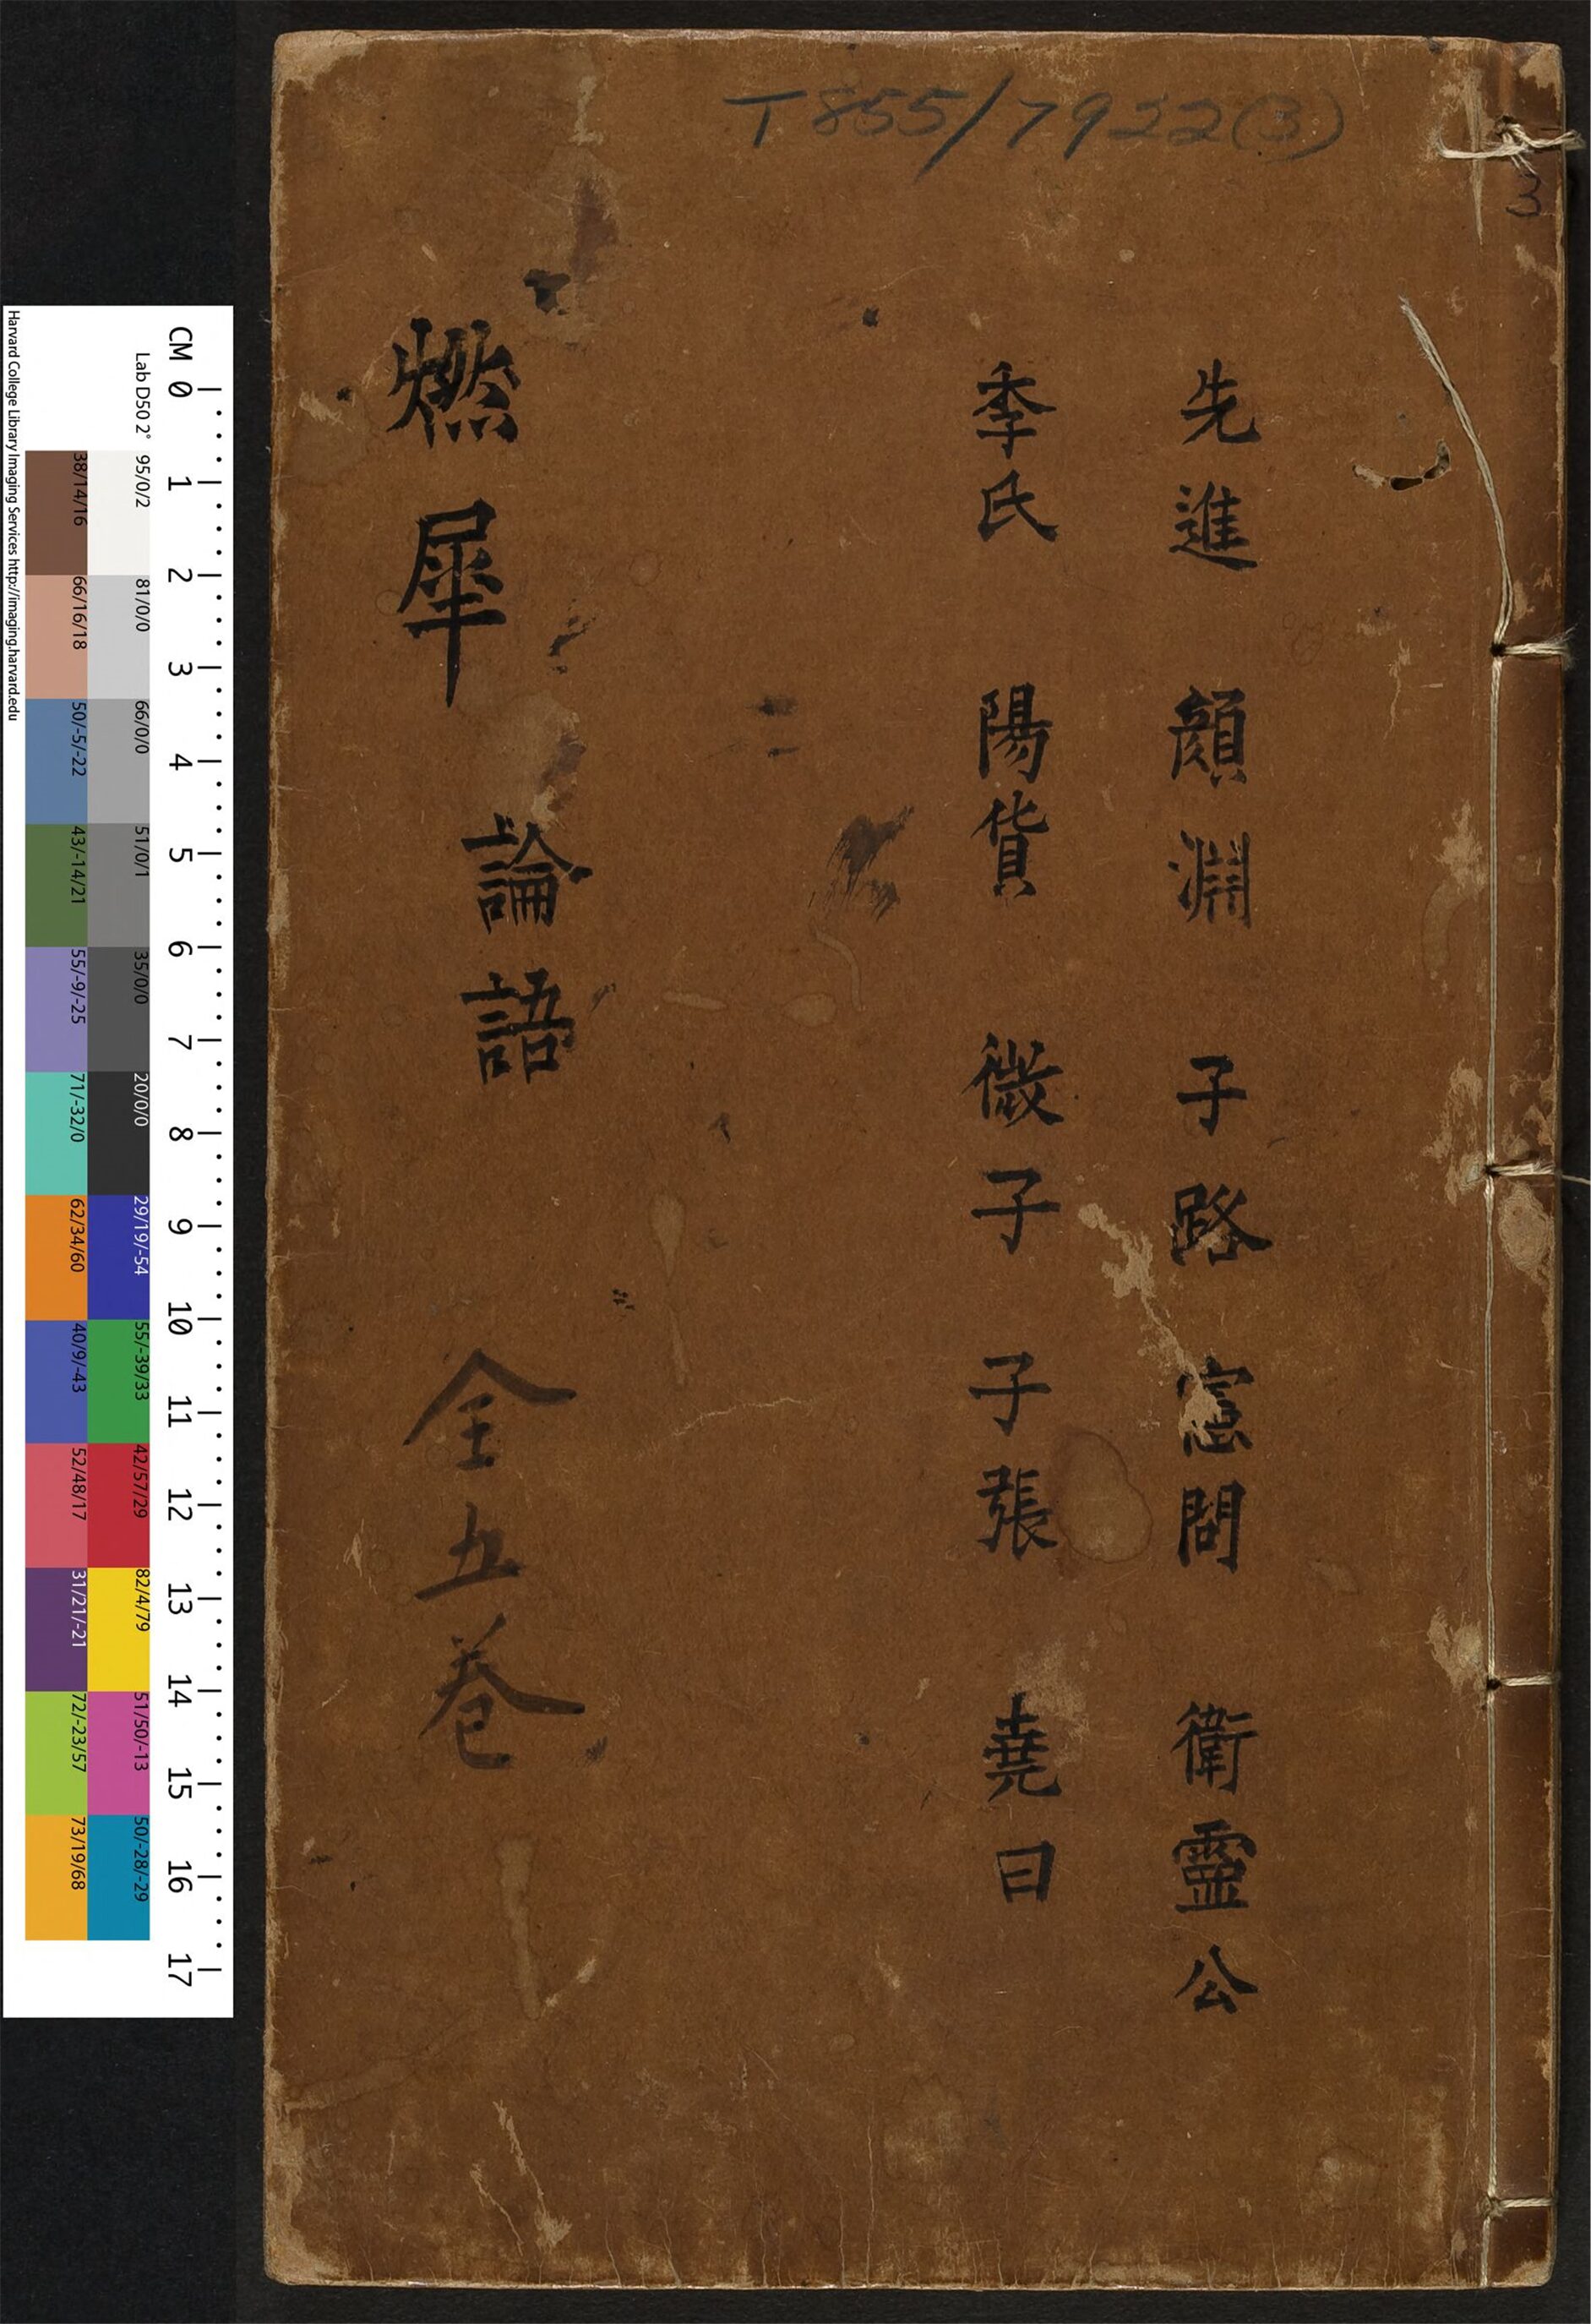 T855/7922(3)
3
先進 顔淵 子路 憲問 衛靈公
季氏 陽貨 微子 子張 堯曰
燃犀 論語 全五卷
CM 0 1 2 3 4 5 6 7 8 9 10 11 12 13 14 15 16 17
Lab D50 2° 95/0/2 81/0/0 66/0/0 51/0/1 35/0/0 20/0/0 29/19/-54 55/-39/33 42/57/29 82/4/79 51/50/-13 50/-28/-29
38/14/16 66/16/18 50/-5/-22 43/-14/21 55/-9/-25 71/-32/0 62/34/60 40/9/-43 52/48/17 31/21/-21 72/-23/57 73/19/68
Harvard College Library Imaging Services http://imaging.harvard.edu